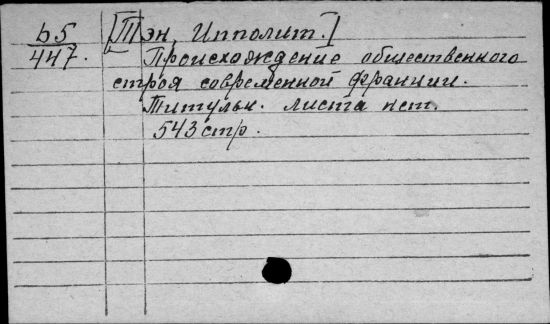 b5
447.
[Тэн, Ипполит.]
Происхождение общественного
строя современной Франции.
Титульн. листа нет.
543 стр.